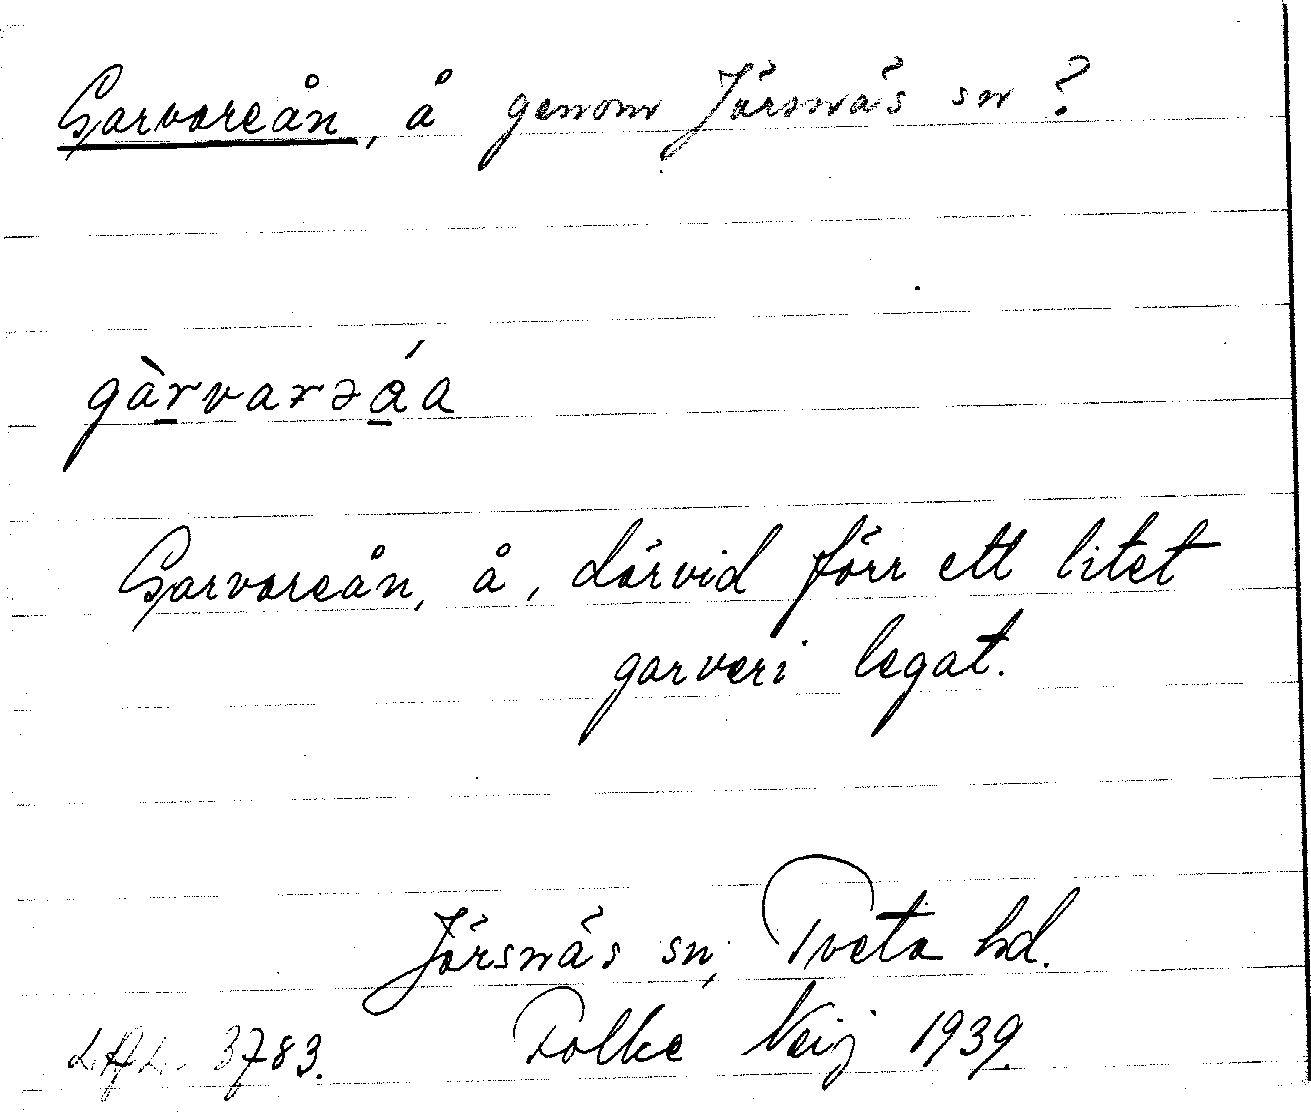 Garvareån, å genom Järsnäs sn?
gàrvarəá̱a
Garvareån, å, därvid förr ett litet
garveri legat.
Järsnäs sn, Tveta hd.
Folke Neij 1939.
3783.